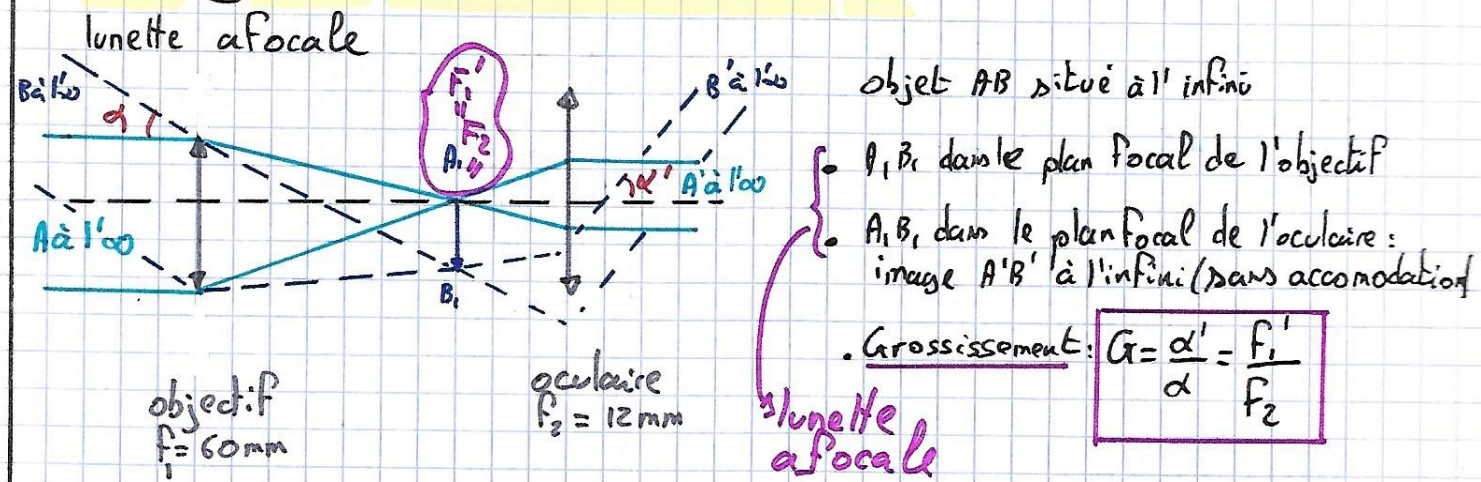 lunette afocale
B à l'∞
α
F₁'
"
F₂
"
A₁
B' à l'∞
α'
A' à l'∞
A à l'∞
B₁
objectif
f₁ = 60 mm
oculaire
f₂ = 12 mm
objet AB situé à l'infini
• A₁B₁ dans le plan focal de l'objectif
• A₁B₁ dans le plan focal de l'oculaire :
image A'B' à l'infini (sans accomodation
. Grossissement : G = α'/α = f₁'/f₂
lunette
afocale